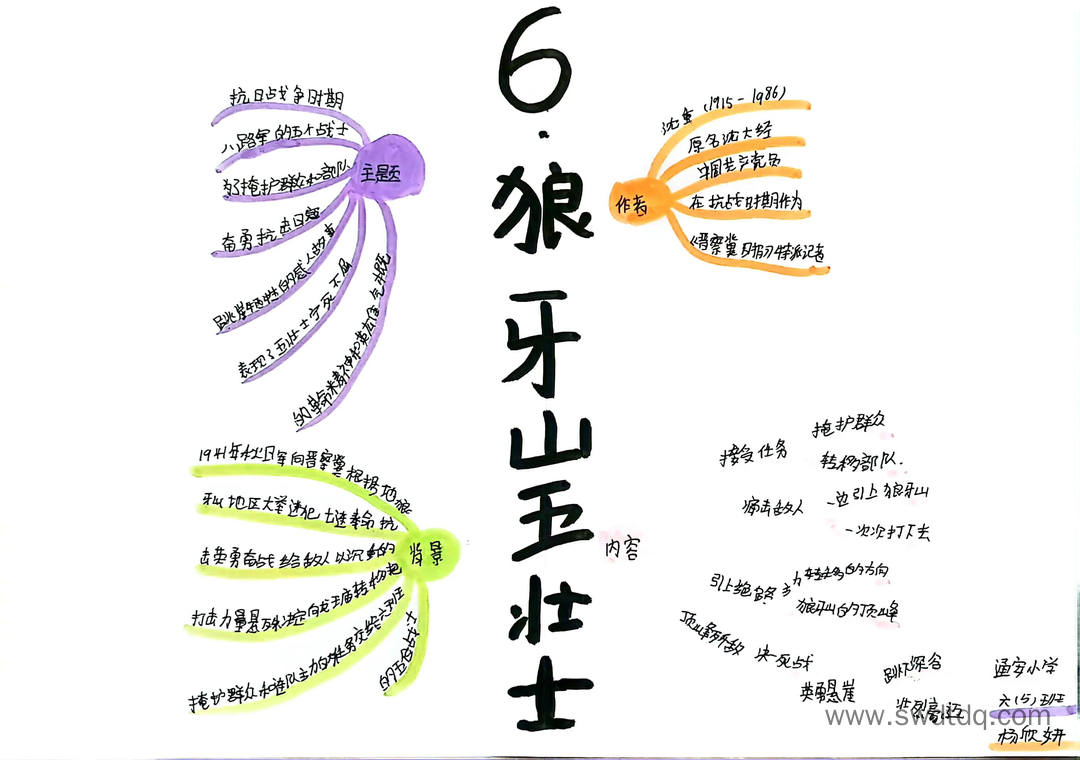 6.狼牙山五壮士
主题
抗日战争时期
八路军的五个战士
为了掩护群众和部队
奋勇抗击日寇
跳崖牺牲的感人故事
表现了五壮士宁死不屈
的革命精神和英雄气概
作者
沈重(1915-1986)
原名沈大经
中国共产党员
在抗战时期作为
《晋察冀日报》特派记者
背景
1941年秋日军向晋察冀根据地狼
牙山地区大举进犯
击英勇奋战给敌人以沉重的
打击力量悬殊决定向龙王庙转移把
掩护群众和连队主力的任务交给六班班
的五名战士
内容
接受任务
掩护群众
转移部队.
痛击敌人
一边引上狼牙山
一次次打下去
引上绝路
主力转移的方向
狼牙山的顶峰
顶峰歼敌
决死战
英勇悬崖
跳下深谷
壮烈豪迈
通安小学
六(5)班
杨欣妍
www.swdtdq.com